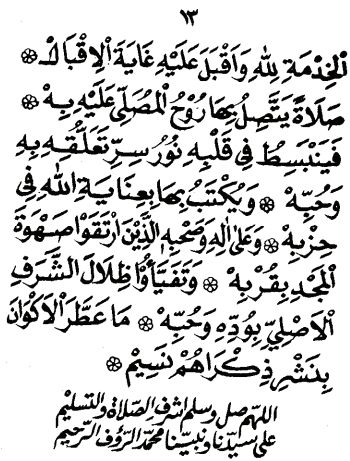 ١٣
الْخِدْمَةِ لِلّٰهِ وَاَقْبَلَ عَلَيْهِ غَايَةَ الْاِقْبَالْ ۞
صَلَاةً يَتَّصِلُ بِهَا رُوْحُ الْمُصَلِّيْ عَلَيْهِ بِهْ ۞
فَيَنْبَسِطُ فِيْ قَلْبِهِ نُوْرُ سِرِّ تَعَلُّقِهِ بِهِ
وَحُبِّهْ ۞ وَيُكْتَبُ بِهَا بِعِنَايَةِ اللّٰهِ فِيْ
حِزْبِهْ ۞ وَعَلٰى اٰلِهِ وَصَحْبِهِ الَّذِيْنَ ارْتَقَوْا صَهْوَةَ
الْمَجْدِ بِقُرْبِهْ ۞ وَتَفَيَّأُوْا ظِلَالَ الشَّرَفِ
الْاَصْلِيِّ بِوُدِّهِ وَحُبِّهْ ۞ مَا عَطَّرَ الْاَكْوَانَ
بِنَشْرِ ذِكْرَاهُمْ نَسِيْمْ ۞
اللهم صل وسلم اشرف الصلاة والتسليم
على سيدنا ونبينا محمد الرؤف الرحيم